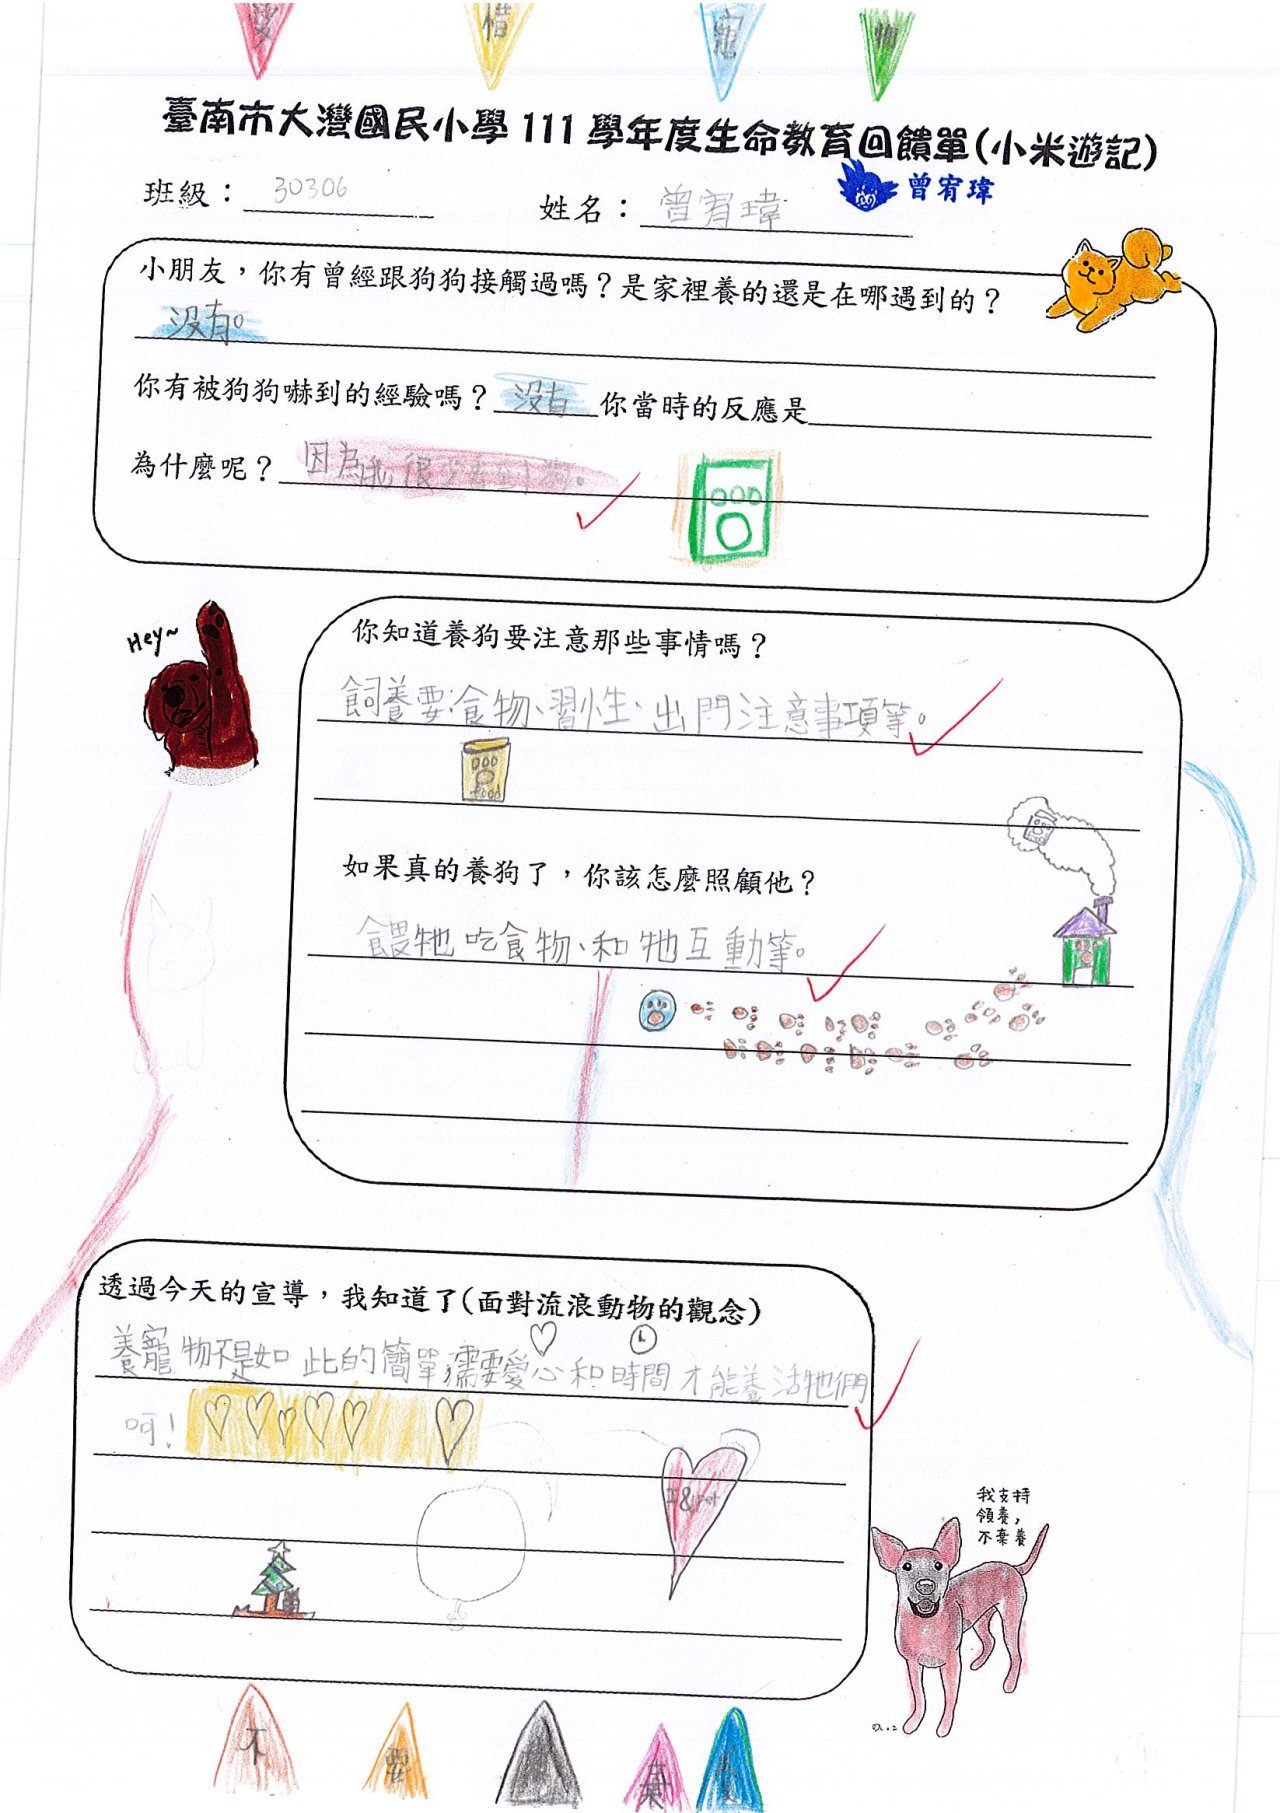 愛 惜 寵 物
臺南市大灣國民小學 111 學年度生命教育回饋單(小米遊記)
班級：30306 姓名：曾宥瑋 曾宥瑋
小朋友，你有曾經跟狗狗接觸過嗎？是家裡養的還是在哪遇到的？
沒有。
你有被狗狗嚇到的經驗嗎？沒有 你當時的反應是
為什麼呢？因為我很少去到狗。
Hey~
你知道養狗要注意那些事情嗎？
飼養要食物、習性、出門注意事項等。
food
如果真的養狗了，你該怎麼照顧他？
餵牠吃食物、和牠互動等。
透過今天的宣導，我知道了(面對流浪動物的觀念)
養寵物不是如此的簡單需要愛心和時間才能養活牠們
呵！
I & pet
我支持
領養，
不棄養
不 要